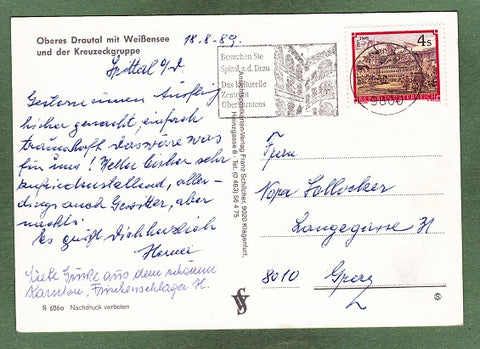 Oberes Drautal mit Weißensee
und der Kreuzeckgruppe
18.8.89.
Spittal a/d.
Gestern einen Ausflug
hieher gemacht, einfach
traumhaft - das wäre was
für uns! Wetter bisher sehr
zufriedenstellend, aller-
dings auch Gewitter, aber
nachts!
Es grüßt Dich herzlich
Liebe Grüße aus dem schönen
Kärnten, Frischenschlager H.
S 606a Nachdruck verboten
Besuchen Sie
Spittal a.d. Drau
Das kulturelle
Zentrum
Oberkärntens
Ansichtskarten-Verlag Franz Schilcher, 9020 Klagenfurt,
Heinzgasse 8 Tel. (0 463) 56 4 75
4 S
REPUBLIK ÖSTERREICH
9800
Frau
Langegasse 31
8010 Graz
S